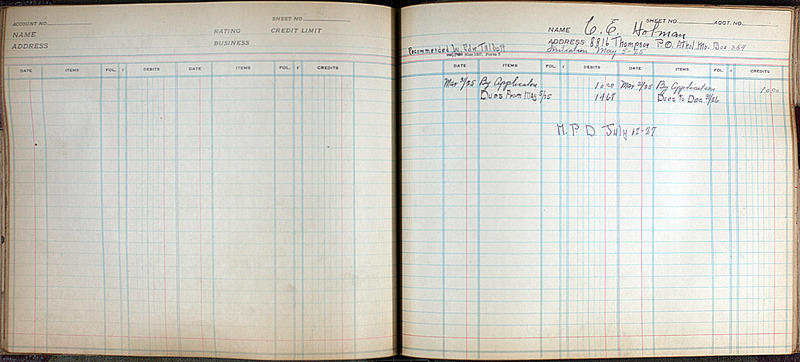 SHEET NO.
ACCOUNT NO.
NAME RATING CREDIT LIMIT
ADDRESS BUSINESS
DATE ITEMS FOL. DEBITS DATE ITEMS FOL. CREDITS
SHEET NO. ACCT. NO.
NAME C. E. Holman
Recommended by Edw Talbott ADDRESS 8816 Thompson P.O. Affil Mo. Box 264
Initiation May 5-25
DATE ITEMS FOL. DEBITS DATE ITEMS FOL. CREDITS
Mar 3/25 By Application 10.00 Mar 3/25 By Application 10.00
Dues From May 5/25 1467 Dues To Dec /26
M.P.D July 12-27